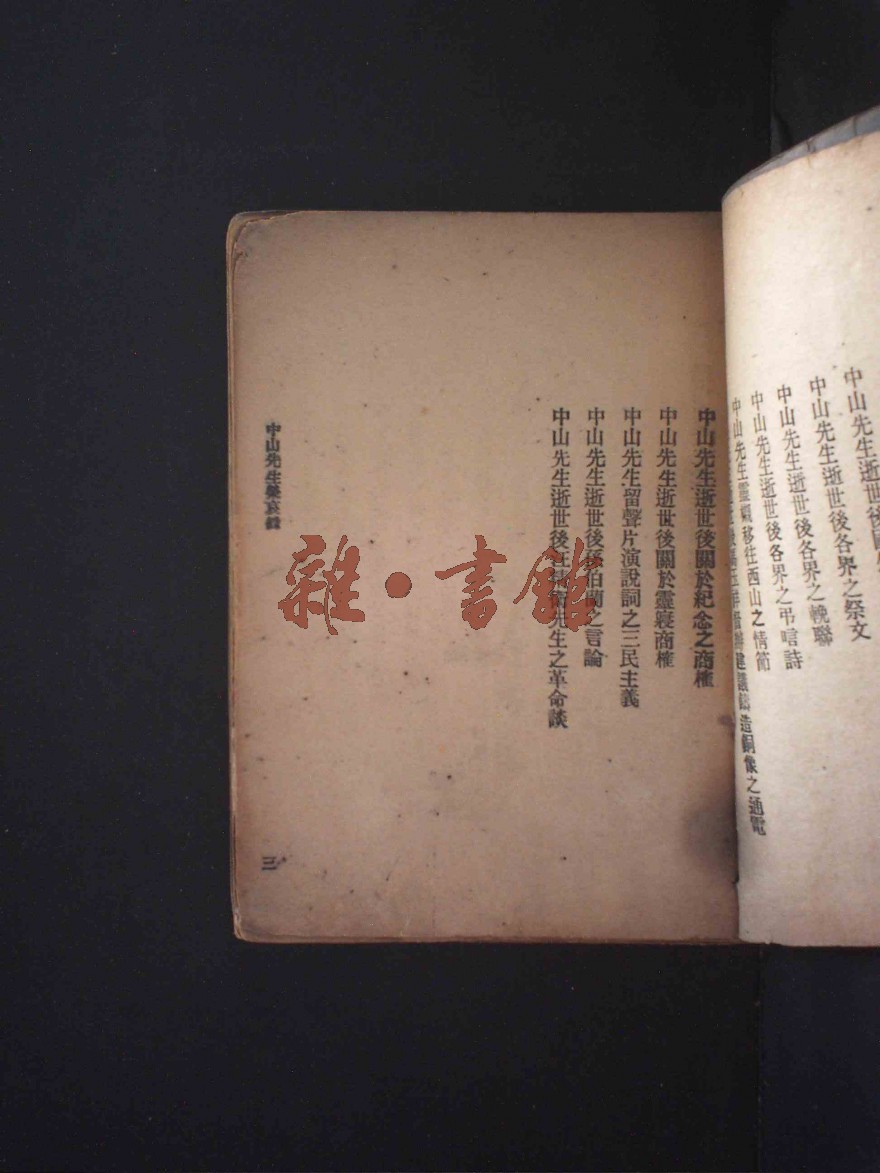 中山先生逝世後各界之祭文
中山先生逝世後各界之輓聯
中山先生逝世後各界之弔唁詩
中山先生逝世後各界之情節
中山先生靈櫬移往西山之情節
建議鑄造銅像之通電
中山先生逝世後關於紀念之商榷
中山先生逝世後關於靈寢商榷
中山先生留聲片演說詞之三民主義
中山先生逝世後孫伯蘭之言論
中山先生逝世後汪精衛先生之革命談
中山先生榮哀錄
三
雜·書館